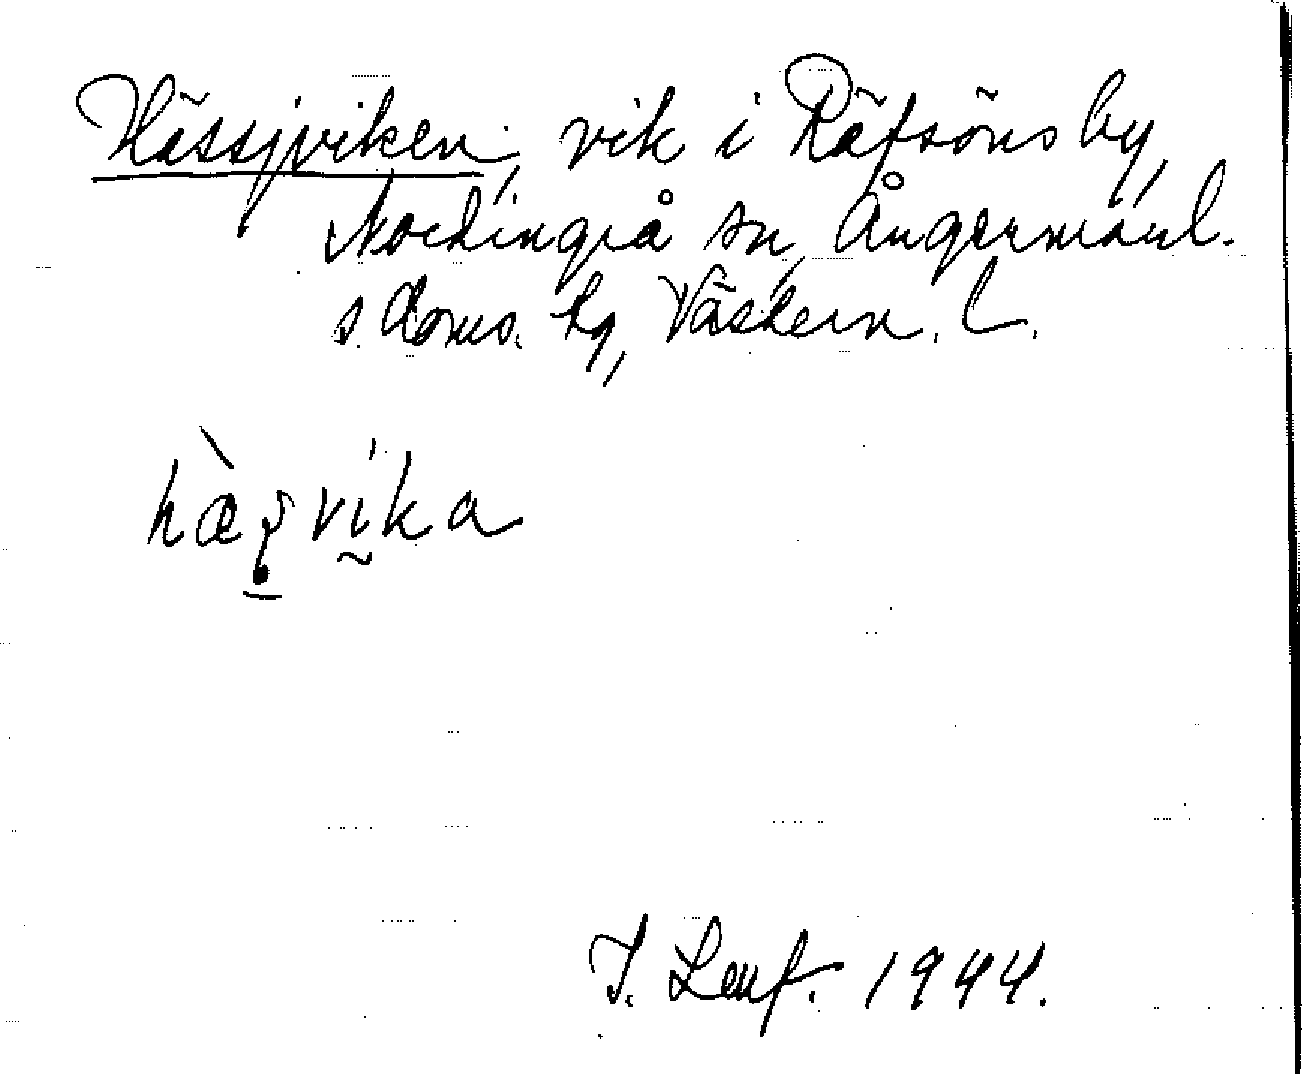 Hässjviken, vik i Räfsöns by,
Nordingrå sn, Ångermanl.
s. doms. hg, Västern. l.
hæ̀ʂvika
J. Leuf. 1944.